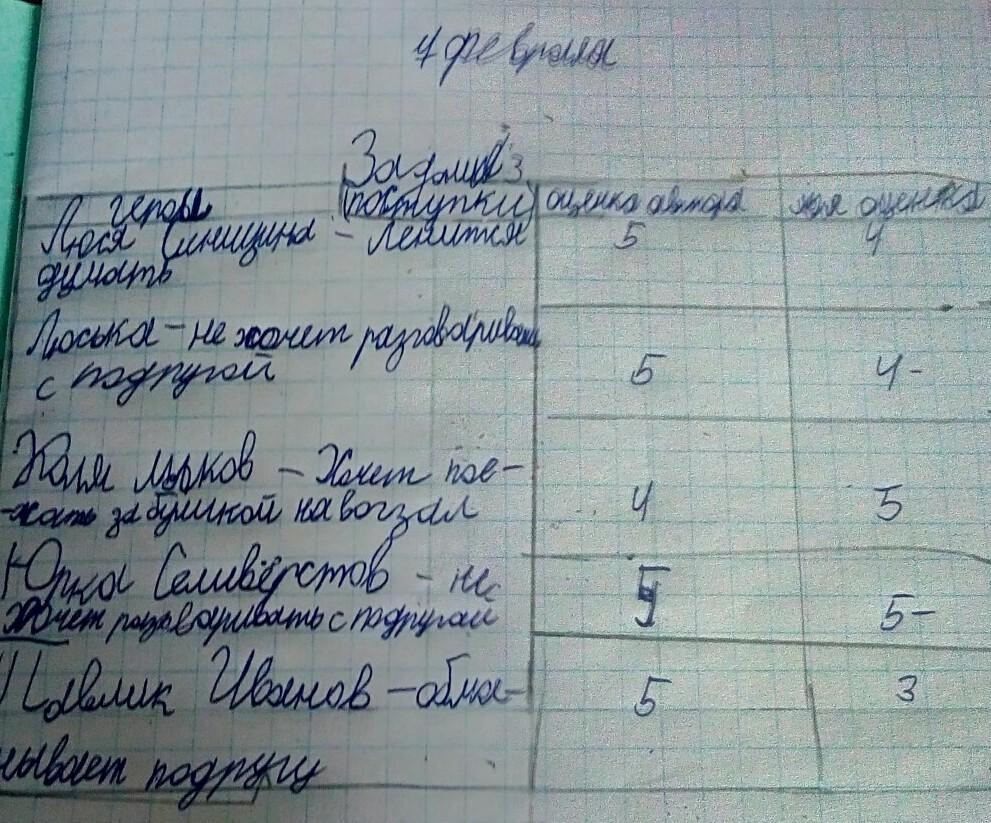 4 февраля
Задание 3
герои (поступки) оценка автора моя оценка
Люся Синицына - Ленится 5 4
думать
Люська - не хочет разговаривать
с подругой 5 4-
Коля Лыков - Хочет пое-
-хать за бушкой на вокзал 4 5
Юрка Селивёрстов - не 5
хочет разговаривать с подругой 5-
Павлик Иванов - обма- 5 3
нывает подругу